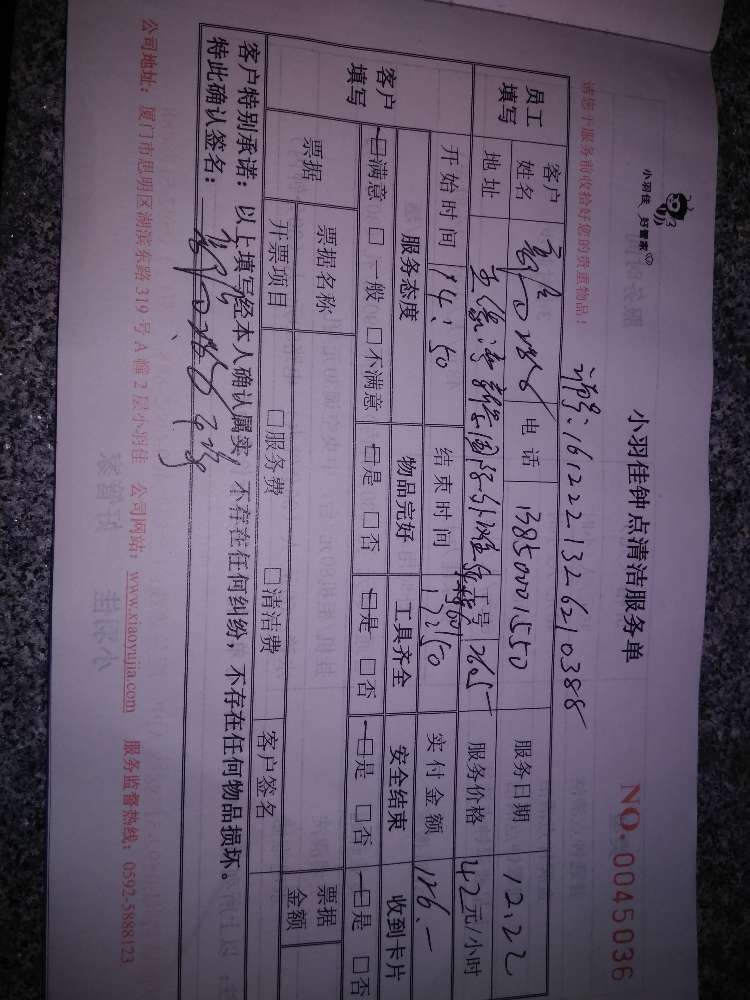 小羽佳 好管家
小羽佳钟点清洁服务单
NO. 0045036
请您于服务前收拾好您的贵重物品！
1612221326210388
员工填写
客户姓名
电话 13850001550
服务日期 12.22
地址
工号 2605
服务价格 42元/小时
开始时间 14:50
结束时间 17:50
实付金额 126.-
客户填写
服务态度 物品完好 工具齐全 安全结束 收到卡片
□满意 □一般 □不满意 □是 □否 □是 □否 □是 □否 □是 □否
票据
票据名称
票据金额
开票项目 □服务费 □清洁费 客户签名
客户特别承诺：以上填写经本人确认属实，不存在任何纠纷，不存在任何物品损坏。
特此确认签名：
公司地址：厦门市思明区湖滨东路319号A幢2层小羽佳 公司网站：www.xiaoyujia.com 服务监督热线：0592-5888123